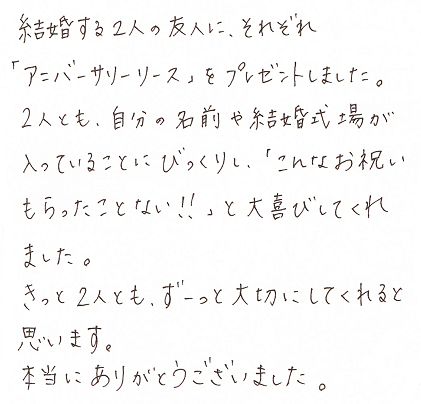 結婚する2人の友人に、それぞれ
「アニバーサリーリース」をプレゼントしました。
2人とも、自分の名前や結婚式場が
入っていることにびっくりし、「こんなお祝い
もらったことない!!」と大喜びしてくれ
ました。
きっと2人とも、ずーっと大切にしてくれると
思います。
本当にありがとうございました。